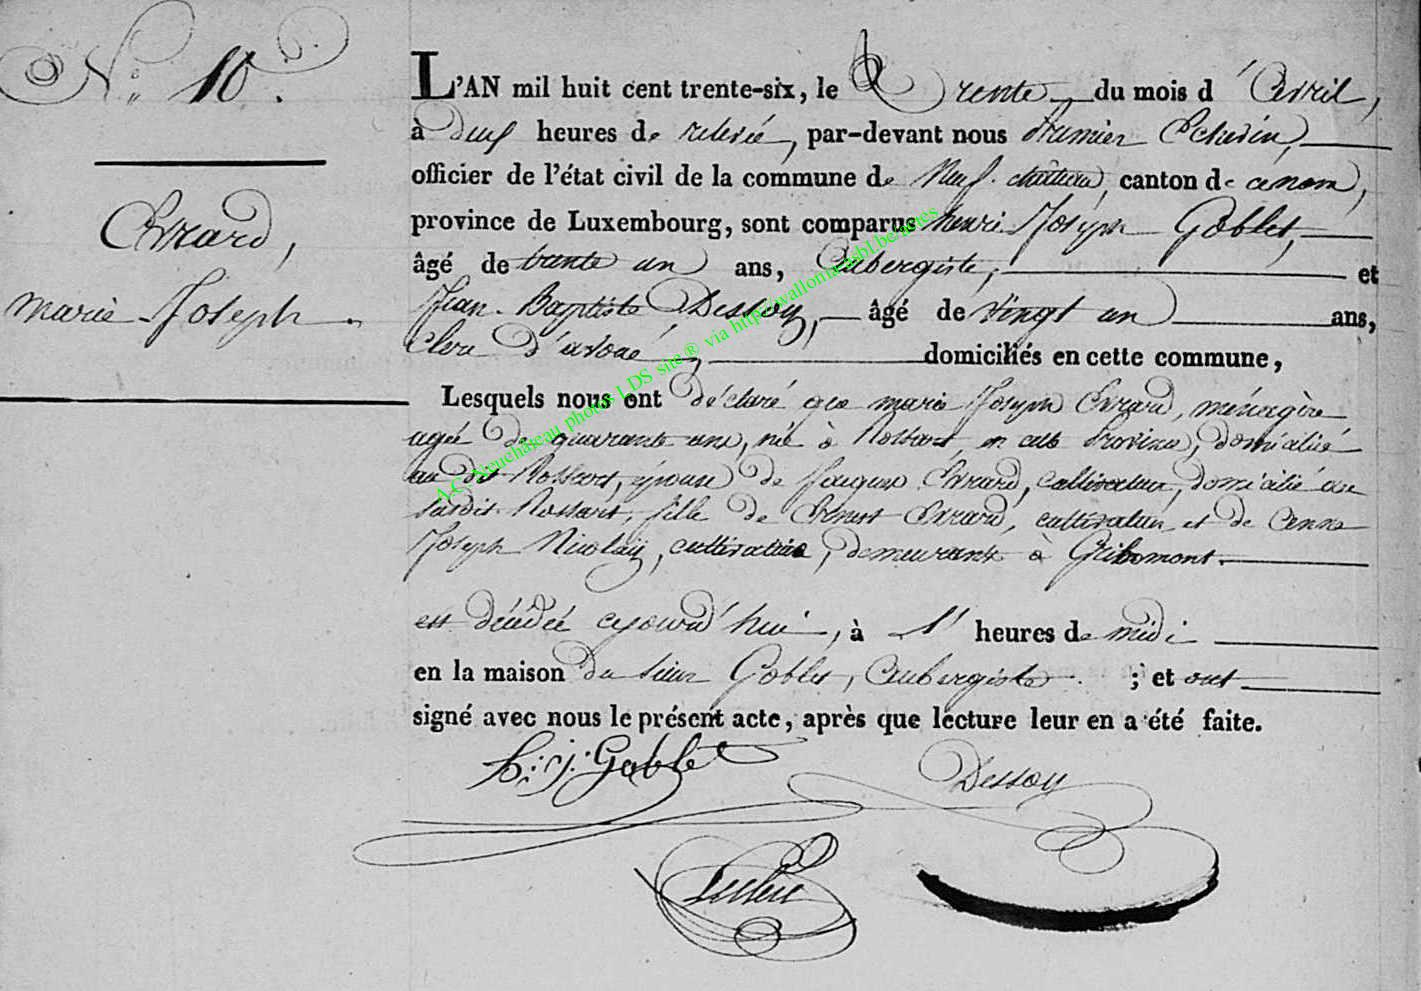 N.° 10.
Evrard,
marie Joseph.
L'AN mil huit cent trente-six, le trente du mois d'Avril,
à deux heures de relevée, par-devant nous Premier Echevin,
officier de l'état civil de la commune de Neufchâteau, canton de ce nom,
province de Luxembourg, sont comparus henri Joseph Goblet,
âgé de trente un ans, Aubergiste, et
Jean-Baptiste Dessoy, âgé de vingt un ans,
Clerc d'avoué, domiciliés en cette commune,
Lesquels nous ont déclaré que marie Joseph Evrard, ménagère
agée de quarante ans, née à Rossart, en cette Province, domiciliée
au dit Rossart, épouse de Jacques Evrard, cultivateur, domicilié au
susdit Rossart, fille de Ernest Evrard, cultivateur et de Anne
Joseph Nicolaÿ, cultivatrice, demeurant à Gribomont.
est décédée aujourd'hui, à heures de midi
en la maison du sieur Goblet, Aubergiste ; et ont
signé avec nous le présent acte, après que lecture leur en a été faite.
h. j. Goblet Dessoy
A.C. Neuchâteau photos LDS site ® via http://wallonia.asbl.be/actes